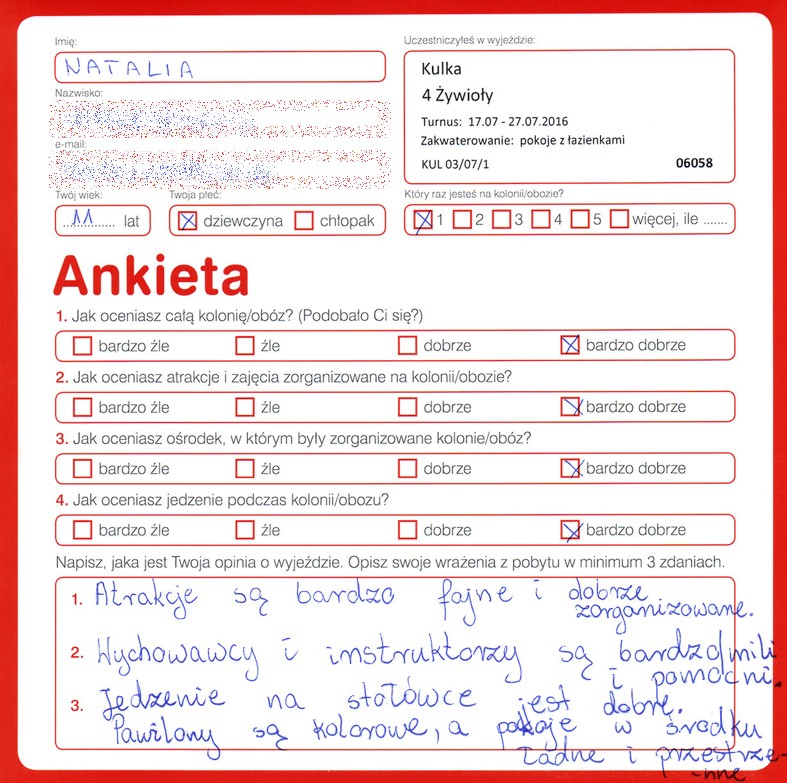 Imię:
NATALIA
Nazwisko:
e-mail:
Twój wiek:
11 lat
Twoja płeć:
dziewczyna chłopak
Uczestniczyłeś w wyjeździe:
Kulka
4 Żywioły
Turnus: 17.07 - 27.07.2016
Zakwaterowanie: pokoje z łazienkami
KUL 03/07/1 06058
Który raz jesteś na kolonii/obozie?
1 2 3 4 5 więcej, ile .......
Ankieta
1. Jak oceniasz całą kolonię/obóz? (Podobało Ci się?)
bardzo źle źle dobrze bardzo dobrze
2. Jak oceniasz atrakcje i zajęcia zorganizowane na kolonii/obozie?
bardzo źle źle dobrze bardzo dobrze
3. Jak oceniasz ośrodek, w którym były zorganizowane kolonie/obóz?
bardzo źle źle dobrze bardzo dobrze
4. Jak oceniasz jedzenie podczas kolonii/obozu?
bardzo źle źle dobrze bardzo dobrze
Napisz, jaka jest Twoja opinia o wyjeździe. Opisz swoje wrażenia z pobytu w minimum 3 zdaniach.
1. Atrakcje są bardzo fajne i dobrze
zorganizowane.
2. Wychowawcy i instruktorzy są bardzo mili
i pomocni.
3. Jedzenie na stołówce jest dobre.
Pawilony są kolorowe, a pokoje w środku
ładne i przestrze-
-nne